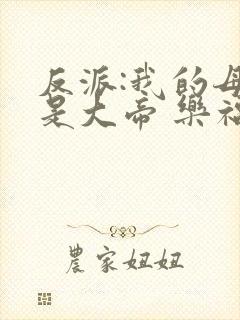 反派:我的母
是大帝 樂福
農家妞妞